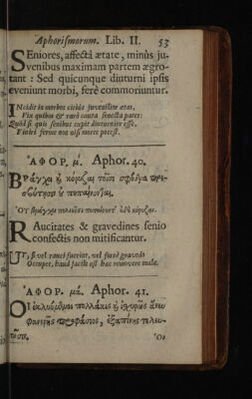 Aphorismorum. Lib. II. 53
SEniores, affecti ætate, minùs ju-
venibus maximam partem ægro-
tant: Sed quicunque diuturni ipsis
eveniunt morbi, ferè commoriuntur.
INcidit in morbos citiùs juvenilior ætas,
Vix quibus & rarò cauta senecta patet:
Quòd si quis senibus cœpit diuturnior esse,
Vinci ferme non nisi morte potest.
ΑΦΟΡ. μ. Aphor. 40.
Βράγχοι καὶ κόρυζαι τοῖσι σφόδρα πρεσ-
βύτῃσιν οὐ πεπαίνονται.
RAucitates & gravedines senio
confectis non mitificantur.
UT, si vel rauci fuerint, vel fortè gravedo
Occupet, haud facile est hæc removere mala.
ΑΦΟΡ. μά. Aphor. 41.
Οἱ ἐκλυόμενοι πολλάκις καὶ ἰσχυρῶς ἄνευ
φανερῆς προφάσιος, ἐξαπίνης τελευ-
τῶσιν.